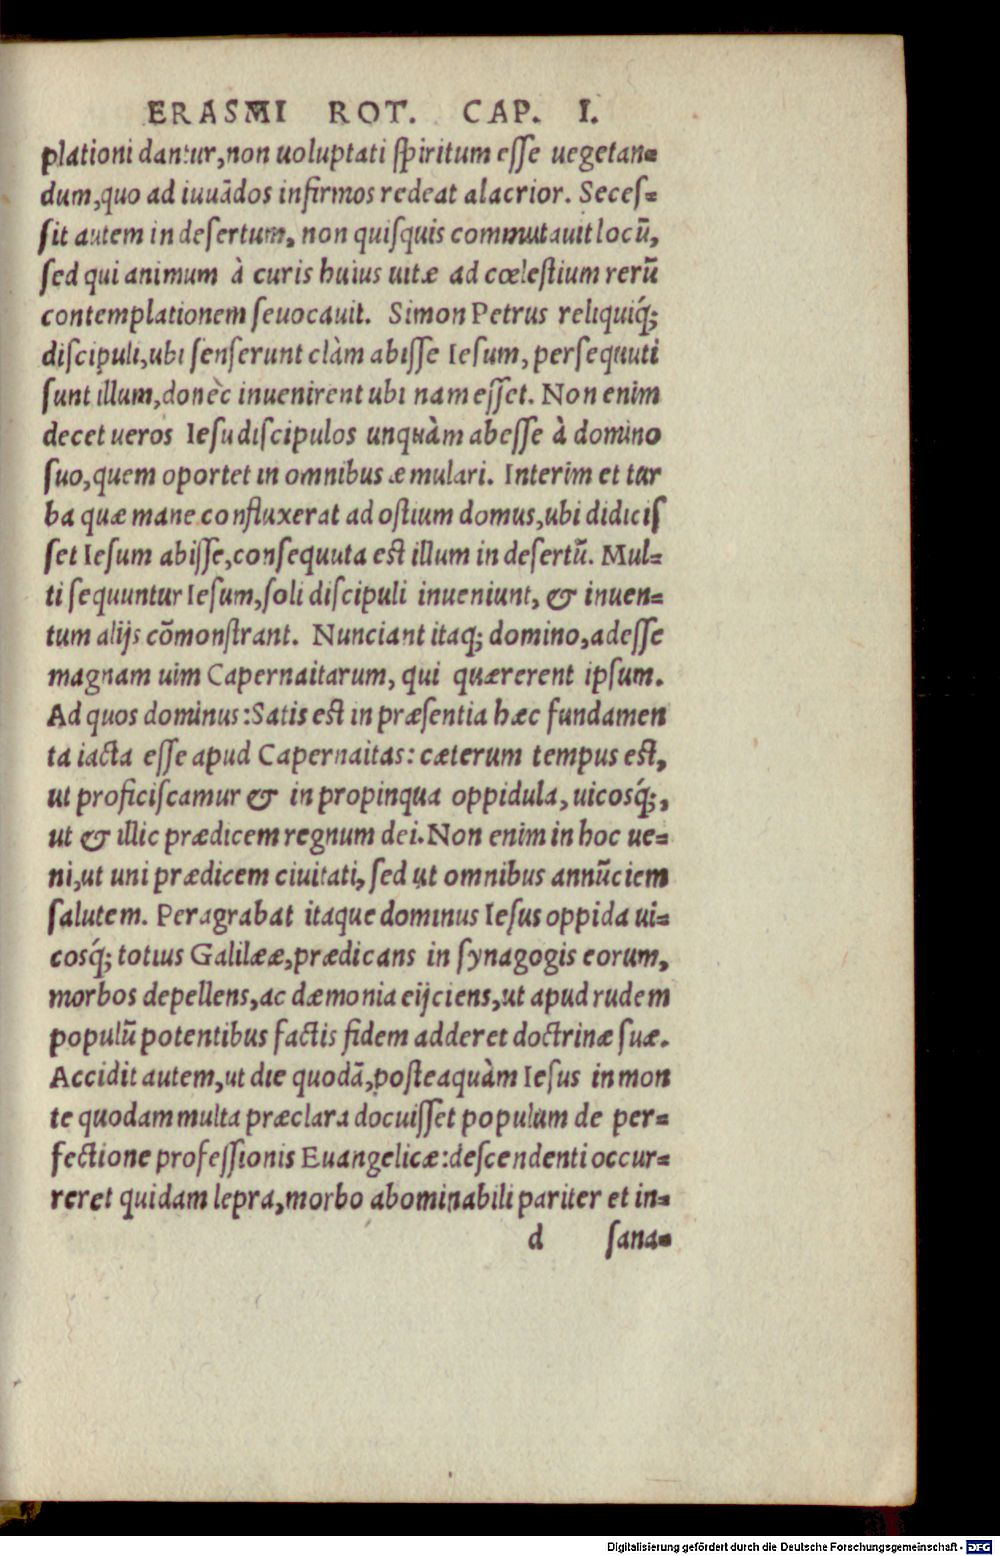 ERASMI ROT. CAP. I.
plationi dantur, non uoluptati ſpiritum eſſe uegetan-
dum, quo ad iuuãdos infirmos redeat alacrior. Seceſ-
ſit autem in deſertum, non quiſquis commutauit locũ,
ſed qui animum à curis huius uitæ ad cœleſtium rerũ
contemplationem ſeuocauit. Simon Petrus reliquiq́;
diſcipuli, ubi ſenſerunt clàm abiſſe Ieſum, perſequuti
ſunt illum, donèc inuenirent ubi nam eſſet. Non enim
decet ueros Ieſu diſcipulos unquàm abeſſe à domino
ſuo, quem oportet in omnibus æmulari. Interim et tur
ba quæ mane confluxerat ad oſtium domus, ubi didiciſ
ſet Ieſum abiſſe, conſequuta eſt illum in deſertũ. Mul-
ti ſequuntur Ieſum, ſoli diſcipuli inueniunt, & inuen-
tum alijs cõmonſtrant. Nunciant itaq; domino, adeſſe
magnam uim Capernaitarum, qui quærerent ipſum.
Ad quos dominus: Satis eſt in præſentia hæc fundamen
ta iacta eſſe apud Capernaitas: cæterum tempus eſt,
ut proficiſcamur & in propinqua oppidula, uicosq́;,
ut & illic prædicem regnum dei. Non enim in hoc ue-
ni, ut uni prædicem ciuitati, ſed ut omnibus annũciem
ſalutem. Peragrabat itaque dominus Ieſus oppida ui-
cosq́; totius Galilææ, prædicans in ſynagogis eorum,
morbos depellens, ac dæmonia eijciens, ut apud rudem
populũ potentibus factis fidem adderet doctrinæ ſuæ.
Accidit autem, ut die quodã, poſteaquàm Ieſus in mon
te quodam multa præclara docuiſſet populum de per-
fectione profeſſionis Euangelicæ: deſcendenti occur-
reret quidam lepra, morbo abominabili pariter et in-
d ſana-
Digitalisierung gefördert durch die Deutsche Forschungsgemeinschaft - DFG